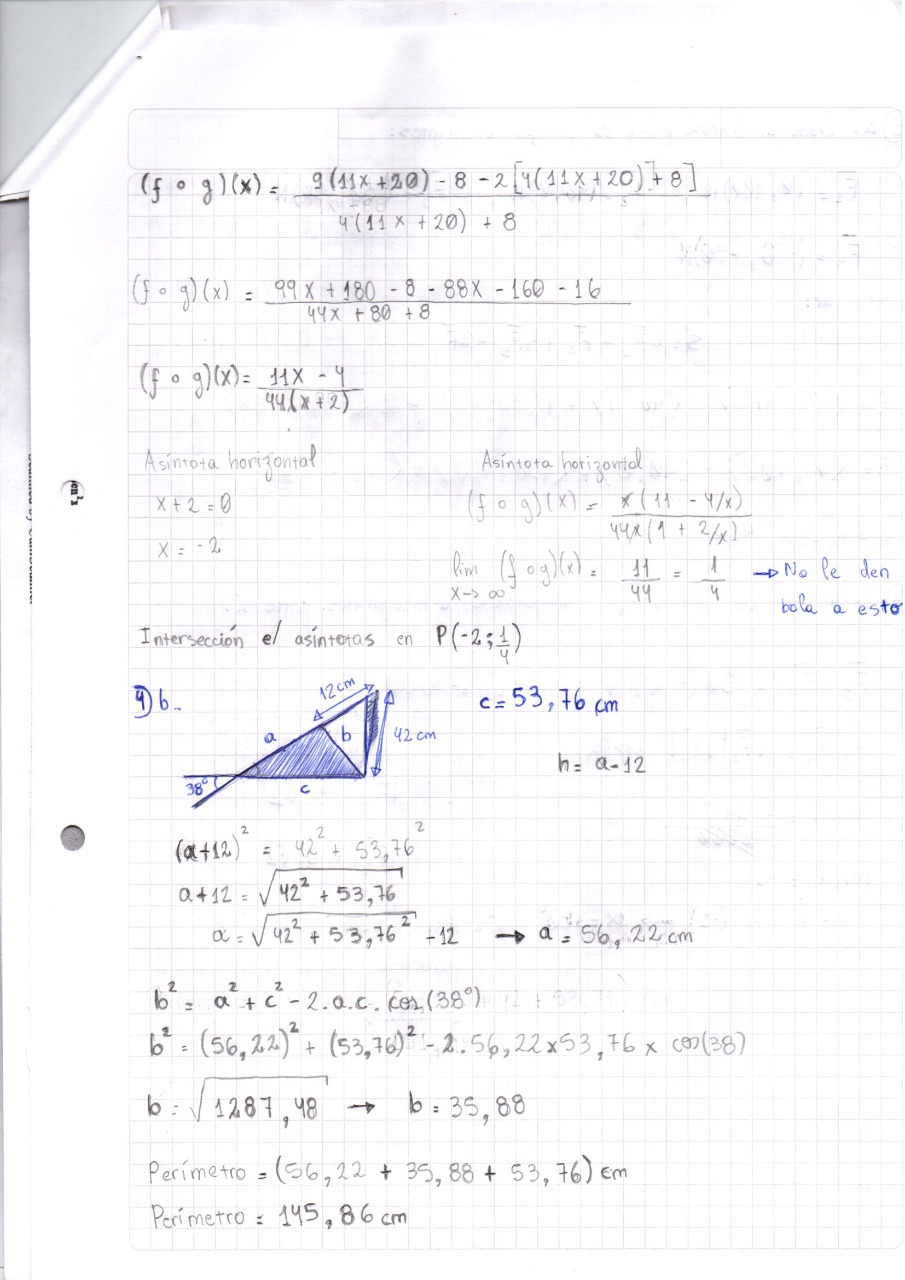 (f ∘ g)(x) = 9(11x+20) - 8 - 2[4(11x+20)+8] / 4(11x+20) + 8
(f ∘ g)(x) = 99x + 180 - 8 - 88x - 160 - 16 / 44x + 80 + 8
(f ∘ g)(x) = 11x - 4 / 44(x+2)
Asíntota horizontal
x + 2 = 0
x = -2
Asíntota horizontal
(f ∘ g)(x) = x(11 - 4/x) / 44x(1 + 2/x)
lim x→∞ (f ∘ g)(x) = 11/44 = 1/4 → No le den
bola a esto
Intersección e/ asíntotas en P(-2; 1/4)
4) b.
12 cm
a
b
42 cm
38°
c
c = 53,76 cm
h = a-12
(a+12)² = 42² + 53,76²
a+12 = √(42² + 53,76)
a = √(42² + 53,76²) - 12 → a = 56,22 cm
b² = a² + c² - 2.a.c. cos(38°)
b² = (56,22)² + (53,76)² - 2.56,22x53,76 x cos(38)
b = √1287,48 → b = 35,88
Perímetro = (56,22 + 35,88 + 53,76) cm
Perímetro = 145,86 cm